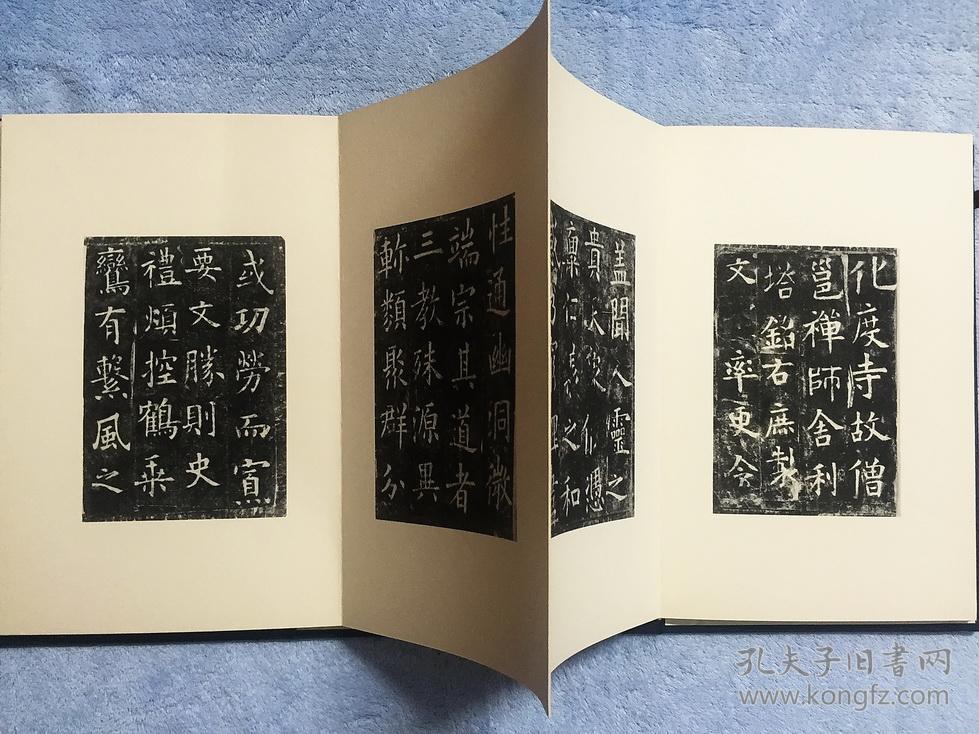 化度寺故僧
邕禪師舍利
塔銘右庶製
文 率更令
盖聞人靈之
貴天象攸憑
稟仁義之和
性通幽洞微
端宗其道者
三教殊源異
軫類聚群分
或功勞而寡
要文勝則史
禮煩控鶴乘
鸞有繫風之
孔夫子旧書网
www.kongfz.com